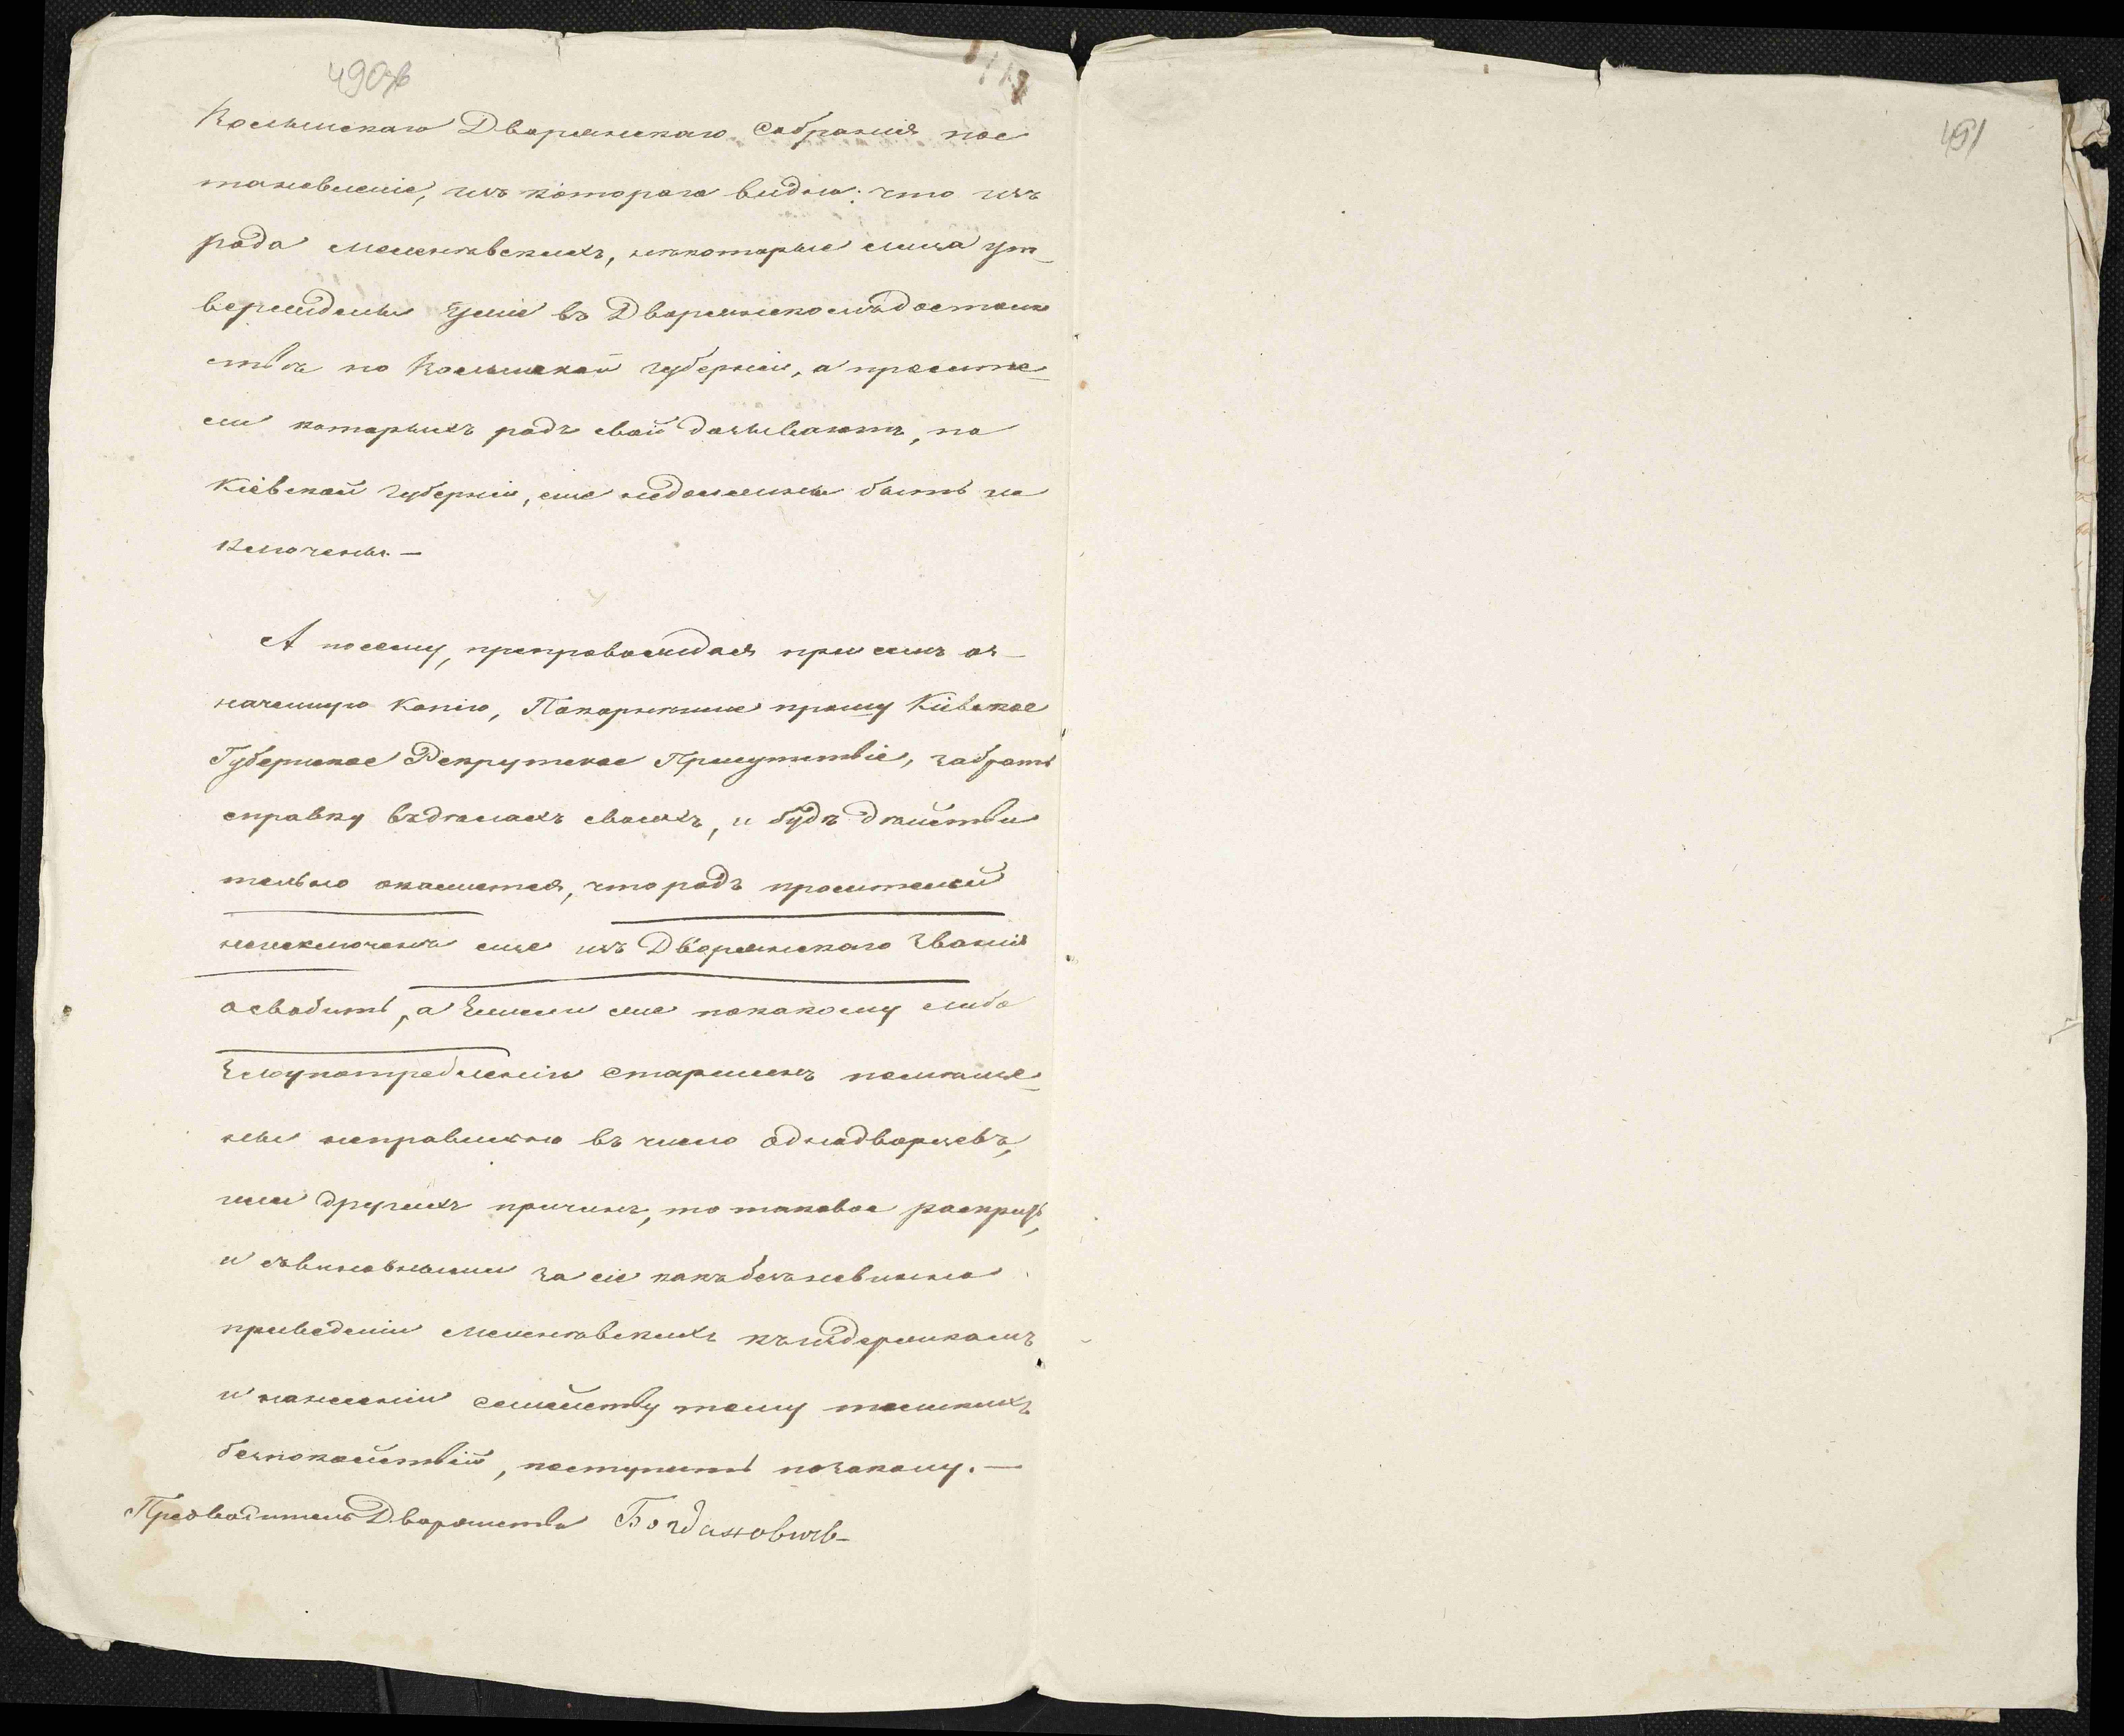 490об
Волынскаго Дворянскаго Собранія пос
тановленіе, изъ котораго видно: что изъ
рода Меленевскихъ, некоторые лица ут_
верждены уже въ Дворянскомъ достоин
ствѣ по Волынской губерніи, а просите_
ли которыхъ родъ свой доказываютъ, по
Кіевской Губерніи, еще недолжны быть из
ключены. —
А посему, препровождая при семъ оз_
наченную Копію, Покорнѣйше прошу Кіевское
Губернское Рекрутское Присутствіе, забрать
справку въ дѣлахъ своихъ, и будѣ дѣйстви
тельно окажется, что родъ просителей
неисключенъ еще изъ Дворянскаго Званія
освободить, а Ежели еще покакому либо
Злоупотребленію Старшинъ помѣще_
ны неправильно въ число однодворцевъ,
или другихъ причинъ, то таковое раскрыть,
и съвиновными за сіе какъ безневинно
приведеніи Меленевскихъ къ издержкамъ
и нанесеніи семейству тому тяжкихъ
безпокойствій, поступить по закону. —
Предводитель Дворянства Богдановичъ
491